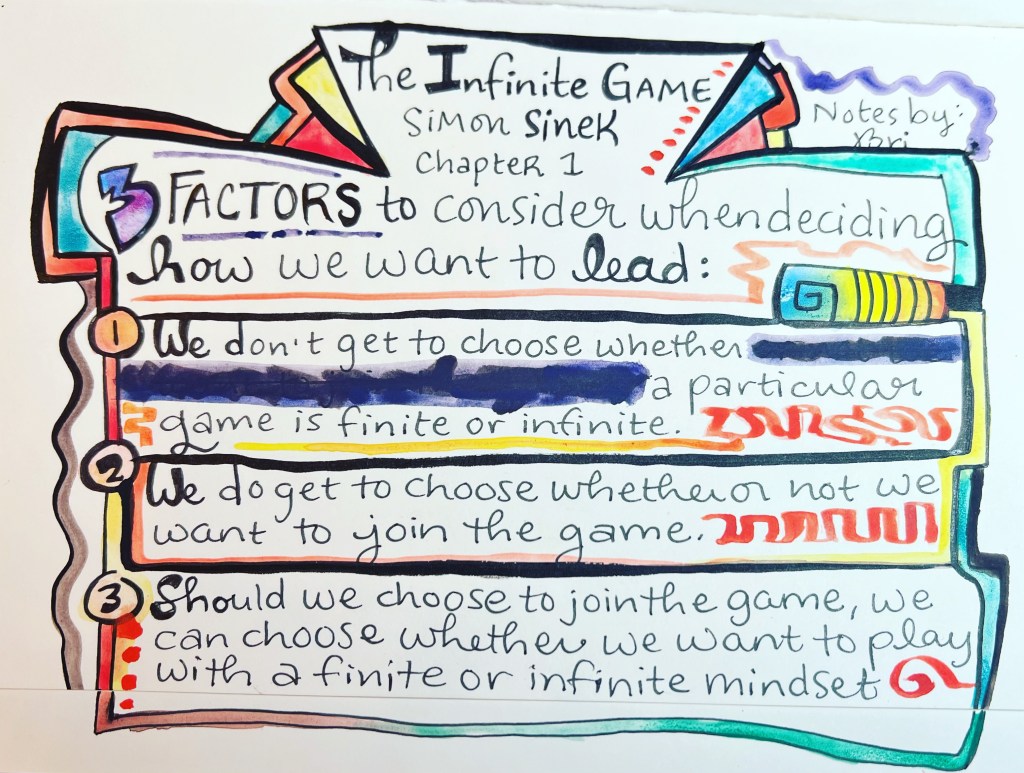 The Infinite GAME
Simon Sinek
Chapter 1
Notes by:
Bri
3 FACTORS to consider when deciding
how we want to lead:
1 We don't get to choose whether
a particular
game is finite or infinite.
2 We do get to choose whether or not we
want to join the game.
3 Should we choose to join the game, we
can choose whether we want to play
with a finite or infinite mindset